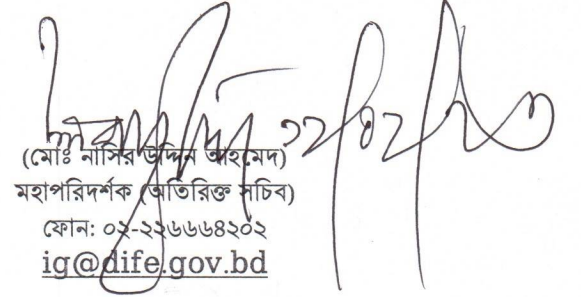 (মোঃ নাসির উদ্দিন আহমেদ)
মহাপরিদর্শক (অতিরিক্ত সচিব)
ফোন: ০২-২২৬৬৬৪২০২
ig@dife.gov.bd